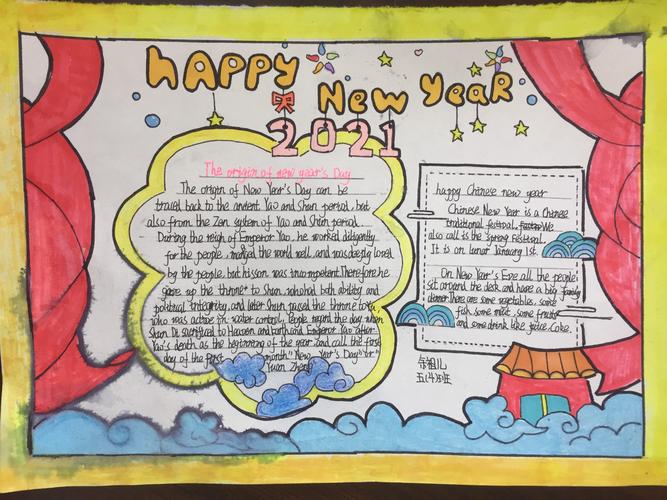 HAPPY New Year
2021
The origin of new year's Day
The origin of New Year's Day can be
travel back to the ancient Yao and Shun period, but
also from the Zen system of Yao and Shun period.
During the reign of Emperor Yao, he worked diligently
for the people, the world well, and was deeply loved
by the people, but his son was Therefore he
gave up the throne to Shun, who had both ability and
political integrity, and later Shun passed the throne to
who was active in water control. People regard the day when
Shun Di sacrificed to Heaven and Earth and Emperor Yao after
Yao's death as the beginning of the year and call the first
day of the first month "New Year's Day" or "
Yuan Zheng
happy Chinese new year
Chinese New Year is a Chinese
traditional festival. We
also call is the Spring Festival.
It is on lunar January 1st.
On New Year's Eve all the people
sit around the desk and have a big family
dinner. There are some vegetables, some
fish, some meat, some fruits
and some drink like juice. Coke.
祖儿
五(4)班